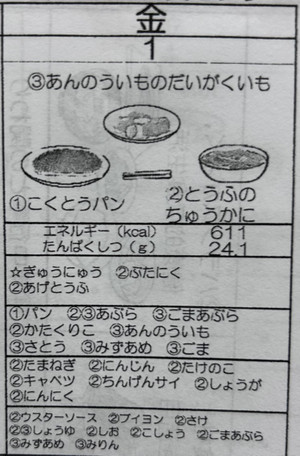 金
1
③あんのういものだいがくいも
①こくとうパン
②とうふの
ちゅうかに
エネルギー(kcal) 611
たんぱくしつ(g) 24.1
☆ぎゅうにゅう ②ぶたにく
②あげとうふ
①パン ②③あぶら ③ごまあぶら
②かたくりこ ③あんのういも
③さとう ③みずあめ ③ごま
②たまねぎ ②にんじん ②たけのこ
②キャベツ ②ちんげんサイ ②しょうが
②にんにく
②ウスターソース ②ブイヨン ②さけ
②③しょうゆ ②しお ②こしょう ②ごまあぶら
③みずあめ ③みりん